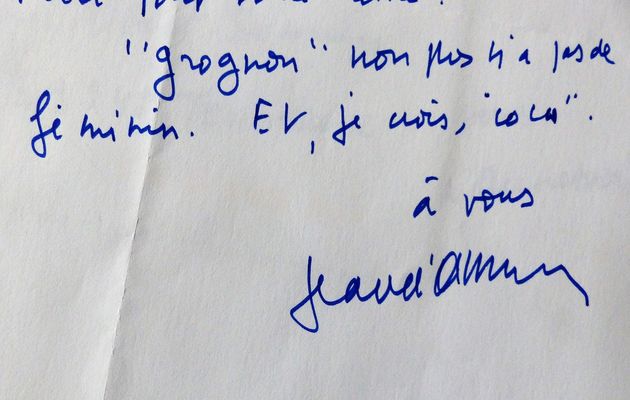 "grognon" non plus n'a pas de
féminin. Et, je crois, "cocu".
à vous
Jean d'Ormesson